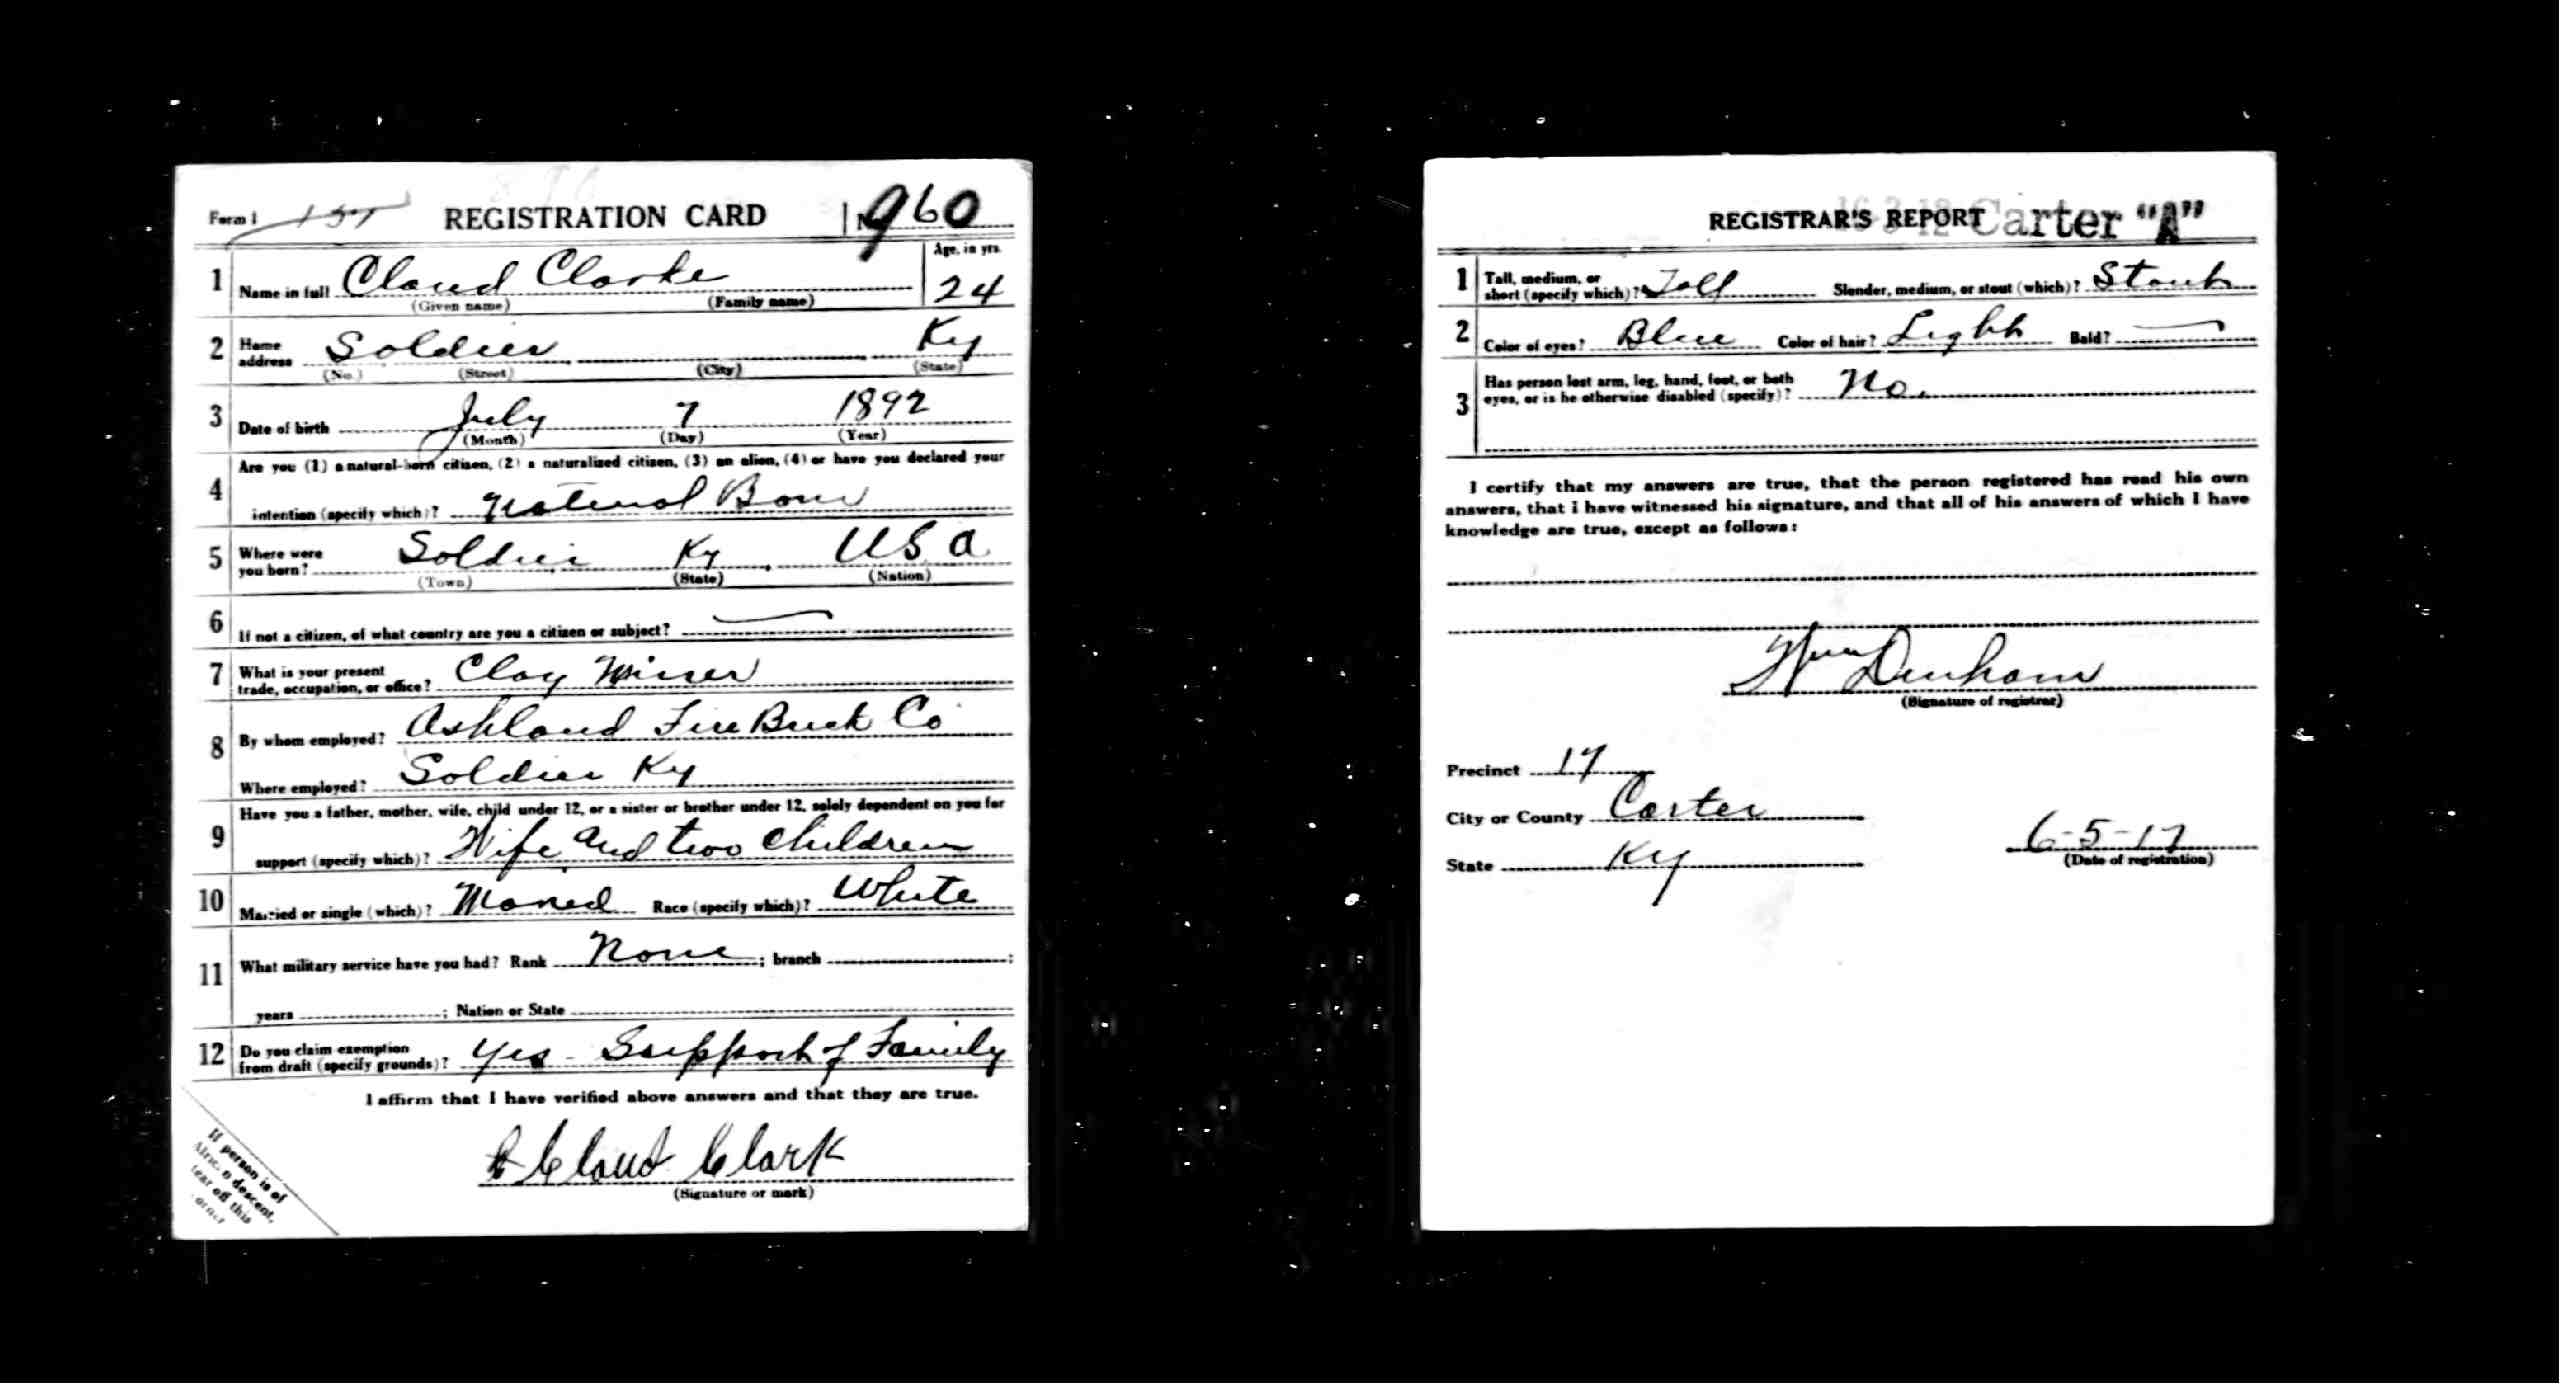 Form 1 157 REGISTRATION CARD No 960
1 Name in full Claud Clarke Age, in yrs. 24
(Given name) (Family name)
2 Home address Soldier Ky
(No.) (Street) (City) (State)
3 Date of birth July 7 1892
(Month) (Day) (Year)
4 Are you (1) a natural-born citizen, (2) a naturalized citizen, (3) an alien, (4) or have you declared your
intention (specify which)? Natural Born
5 Where were you born? Soldier Ky U S A
(Town) (State) (Nation)
6 If not a citizen, of what country are you a citizen or subject? —
7 What is your present trade, occupation, or office? Clay Miner
8 By whom employed? Ashland Fire Brick Co
Where employed? Soldier Ky
9 Have you a father, mother, wife, child under 12, or a sister or brother under 12, solely dependent on you for
support (specify which)? Wife and two children
10 Married or single (which)? Maried Race (specify which)? White
11 What military service have you had? Rank None ; branch ;
years ; Nation or State
12 Do you claim exemption from draft (specify grounds)? Yes - Support of Family
I affirm that I have verified above answers and that they are true.
Claud Clark
(Signature or mark)
If person is of
African descent,
tear off this
corner
REGISTRAR'S REPORT Carter "A"
1 Tall, medium, or short (specify which)? Tall Slender, medium, or stout (which)? Stout
2 Color of eyes? Blue Color of hair? Light Bald? —
3 Has person lost arm, leg, hand, foot, or both
eyes, or is he otherwise disabled (specify)? No.
I certify that my answers are true, that the person registered has read his own
answers, that I have witnessed his signature, and that all of his answers of which I have
knowledge are true, except as follows:
Wm Denham
(Signature of registrar)
Precinct 17
City or County Carter
State Ky
6-5-17
(Date of registration)